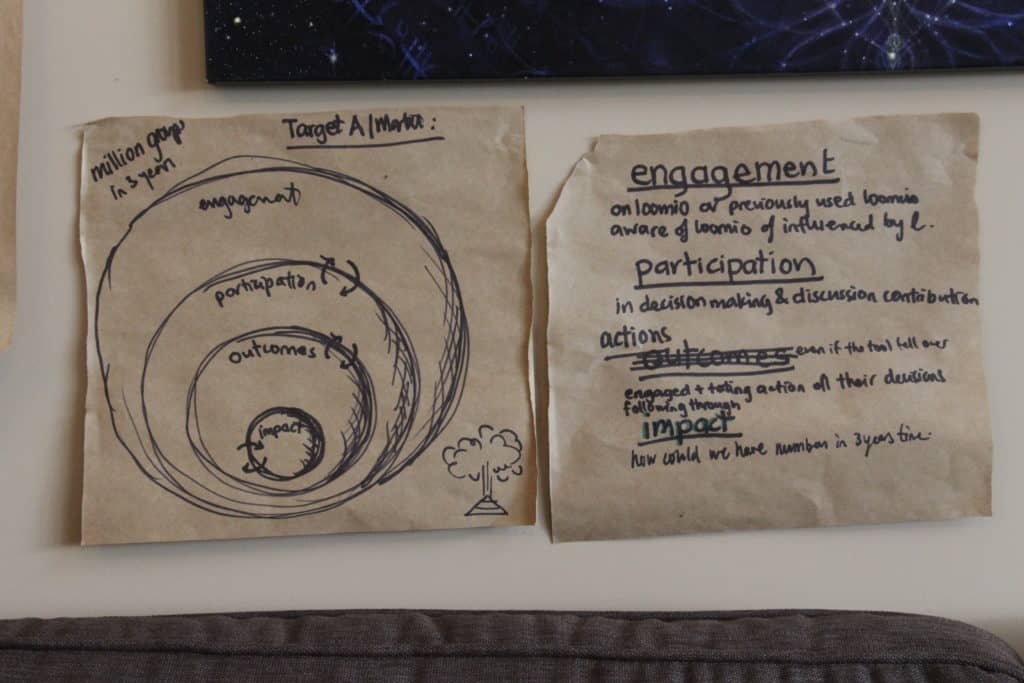 million groups
in 3 years
Target A/Market:
engagement
participation
outcomes
impact
engagement
on loomio or previously used loomio
aware of loomio of influenced by l.
participation
in decision making & discussion contribution
actions
outcomes even if the tool fell over
engaged + taking action off their decisions
following through
impact
how could we have number in 3 years time.